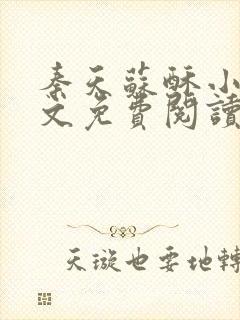 秦天蘇酥小
文免費閱讀
天璇也要地轉